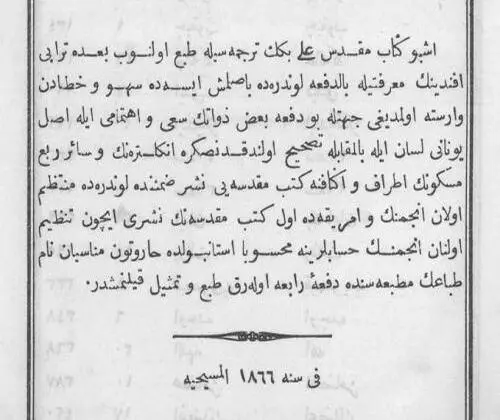 اشبو كتاب مقدس علی بكك ترجمه‌سیله طبع اولنوب بعده ترابی
افندینك معرفتیله بالدفعه لوندره‌ده باصلمش ایسه‌ده سهو و خطادن
وارسته اولمدیغی جهتله بو دفعه بعض ذواتك سعی و اهتمامی ایله اصل
یونانی لسان ایله بالمقابله تصحیح اولندقدنصكره انكلتره‌نك و سائر ربع
مسكونك اطراف و اكنافنه كتب مقدسه‌یی نشر ضمننده لوندره‌ده منتظم
اولان انجمنك و امریقه‌ده اول كتب مقدسه‌نك نشری ایچون تنظیم
اولنان انجمنك حسابلرینه محسوبا استانبولده حاروتون مناسیان نام
طباعك مطبعه‌سنده دفعۀ رابعه اوله‌رق طبع و تمثیل قیلنمشدر.
فی سنه ١٨٦٦ المسیحیه